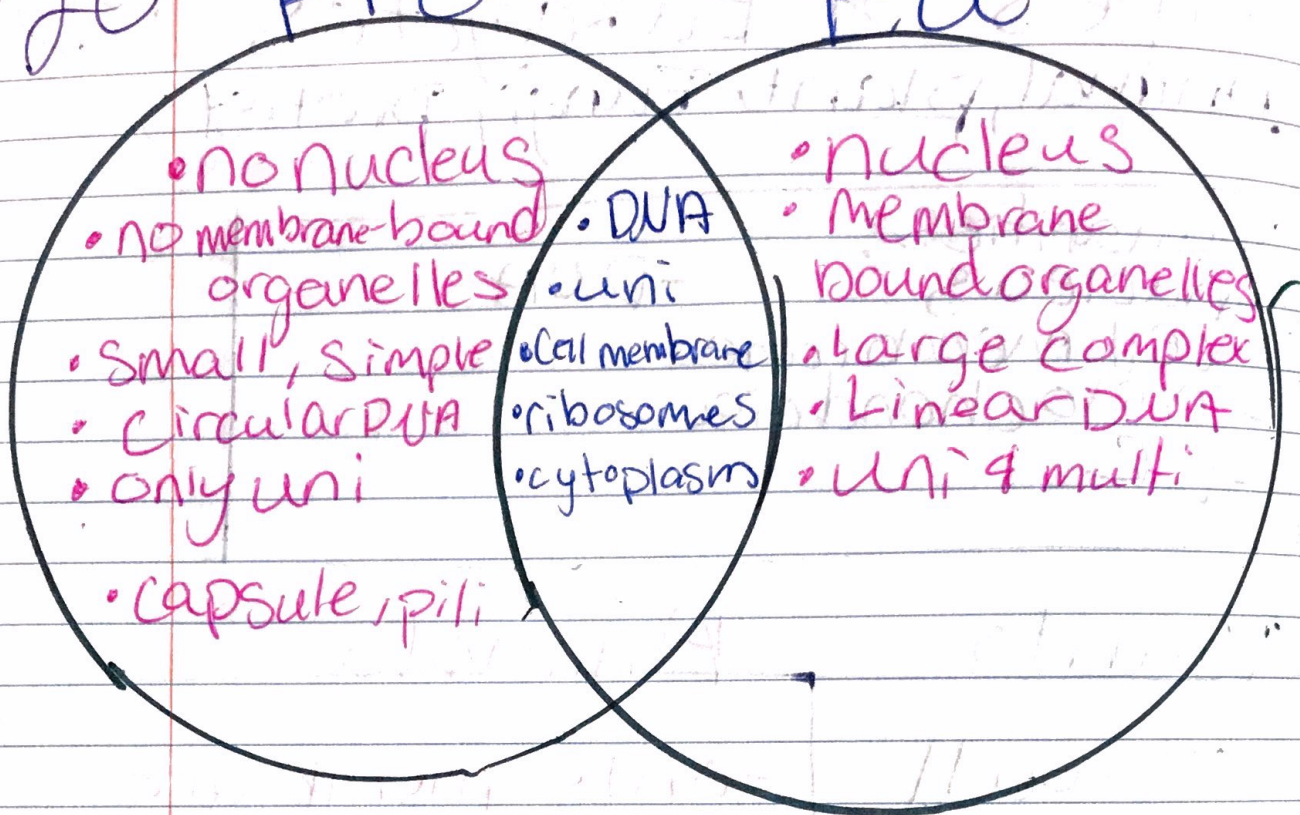 Pro
Euo
• no nucleus
• no membrane-bound
organelles
• small, simple
• circular DNA
• only uni
• capsule, pili
• DNA
• uni
• Cell membrane
• ribosomes
• cytoplasm
• nucleus
• Membrane
bound organelles
• Large complex
• Linear DNA
• Uni & multi